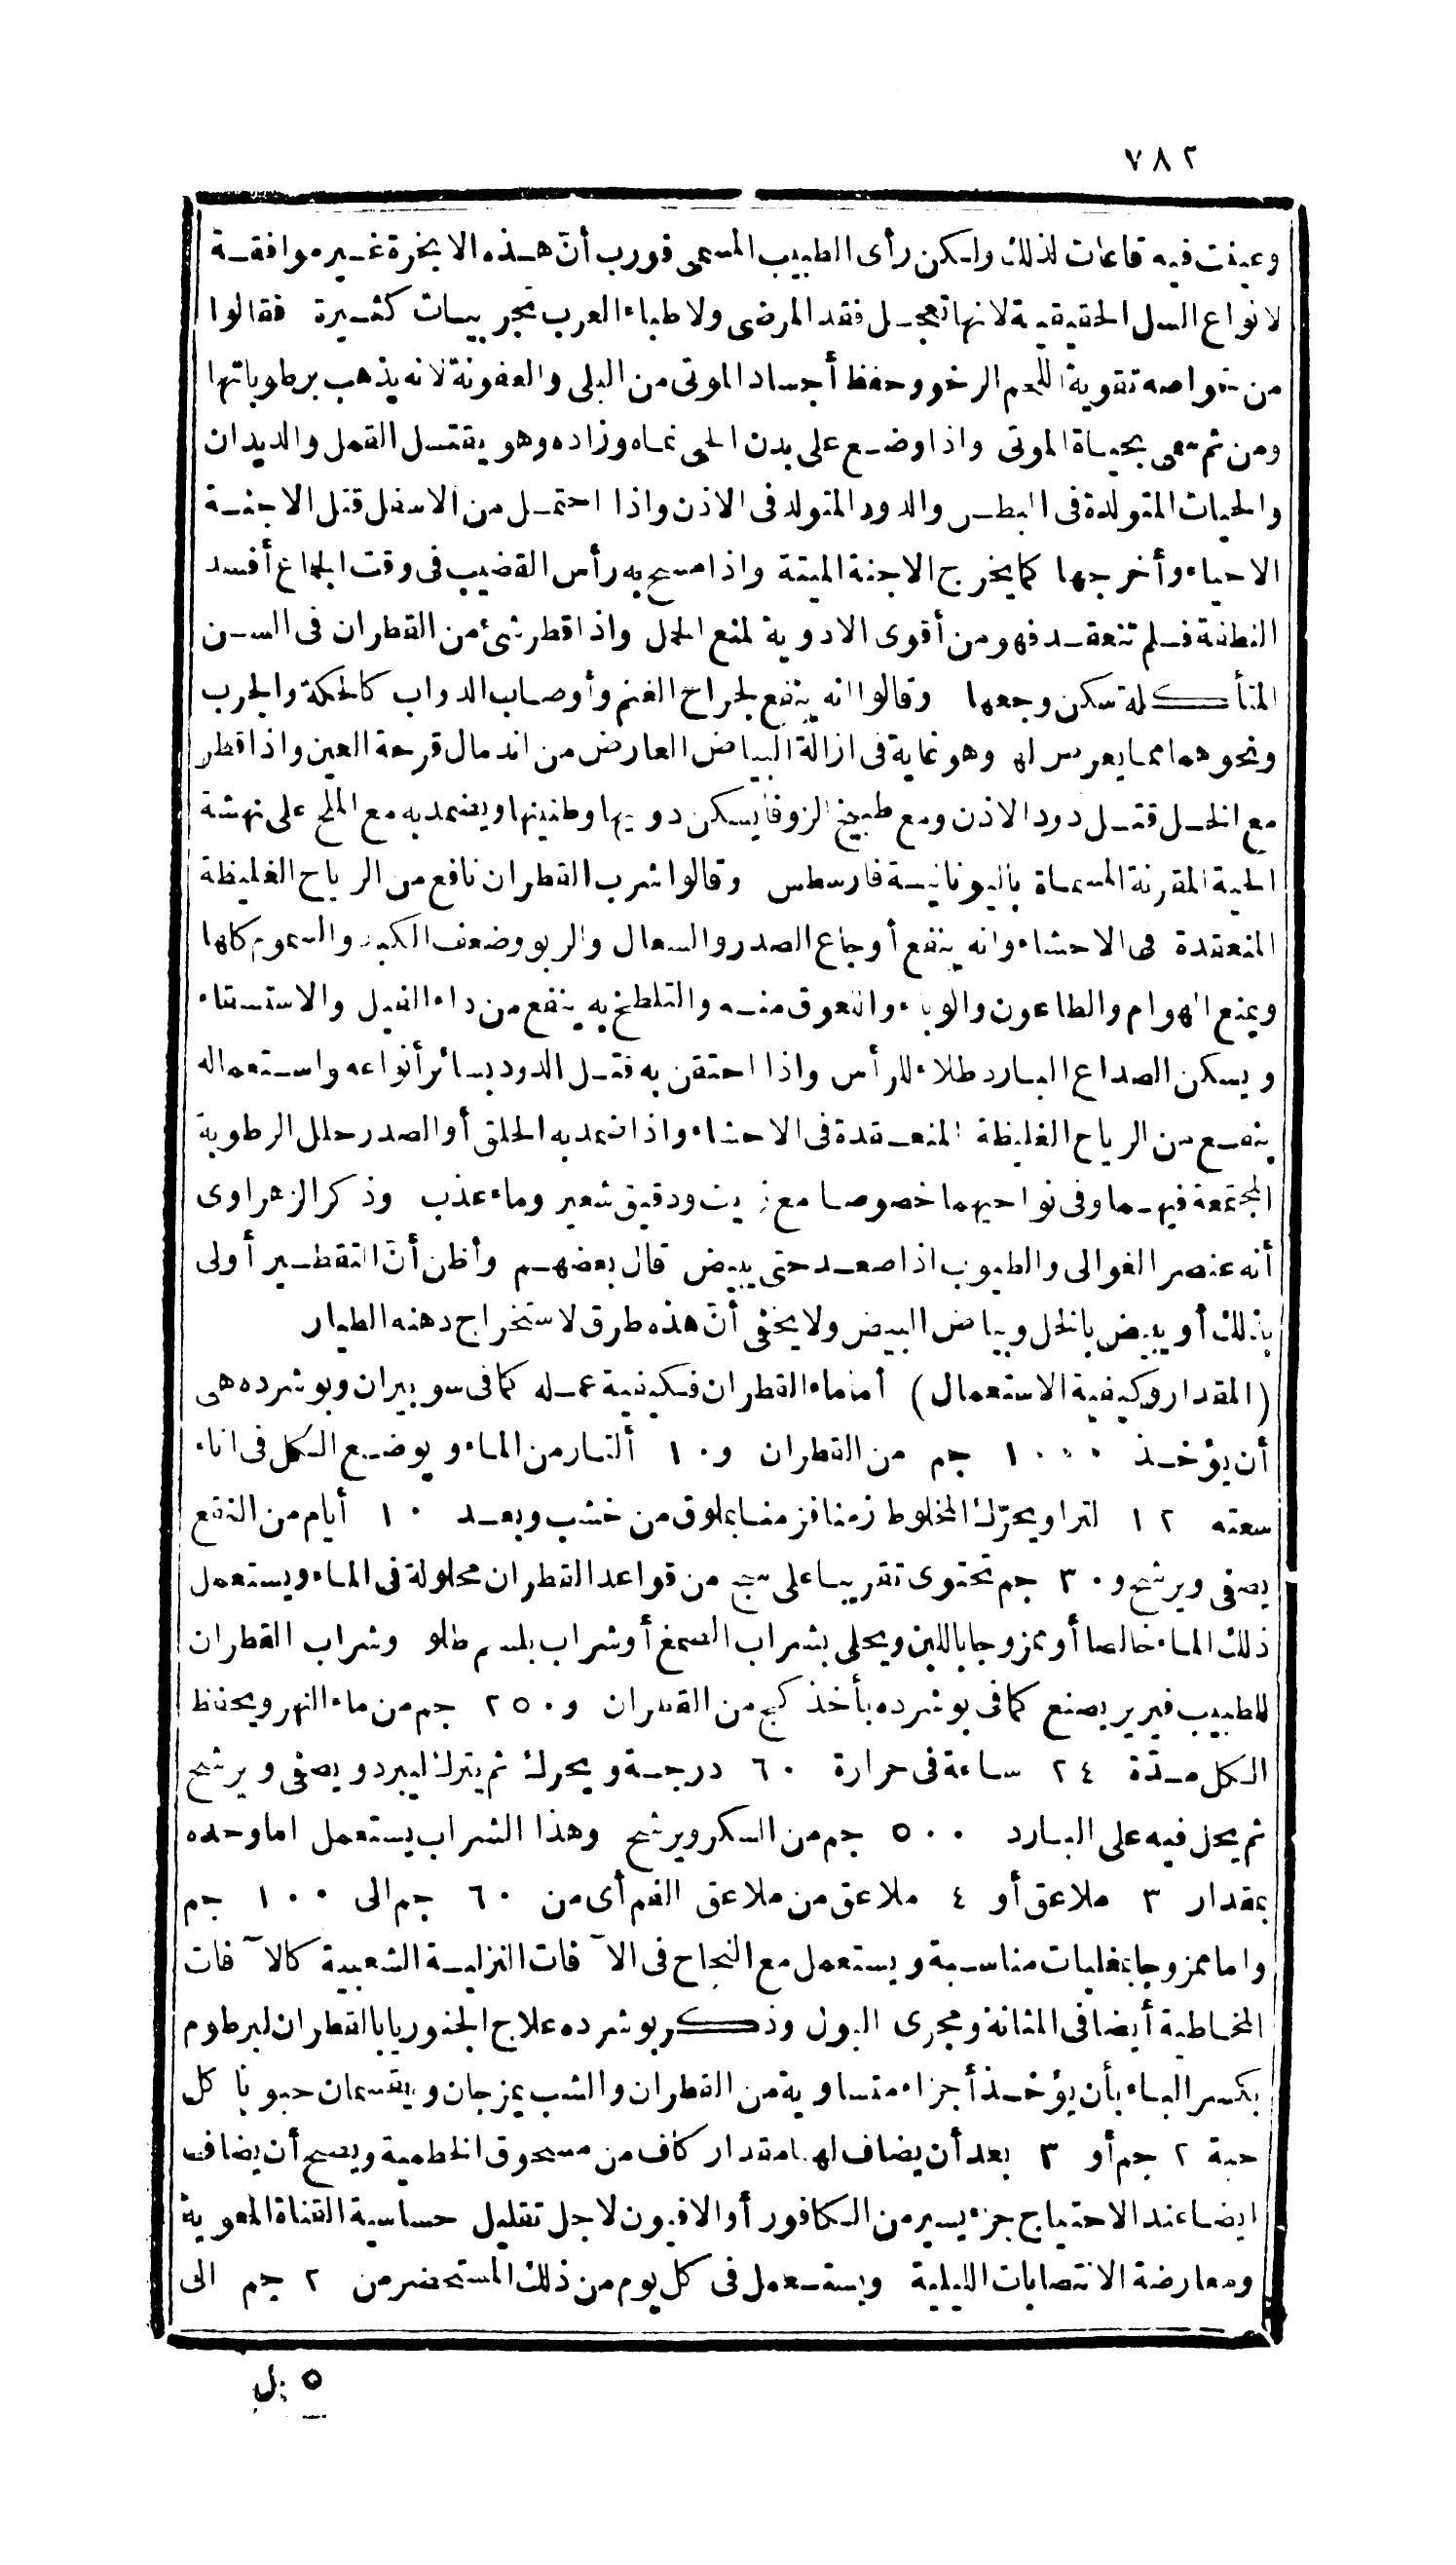 ٧٨٢
وعينت فيه قاعات لذلك ولكن رأى الطبيب المسمى فورب أنّ هذه الابخرة غير موافقة
لانواع السل الحقيقية لانها تعجل فقد المرضى ولاطباء العرب تجريبيات كثيرة فقالوا
من خواصه تقوية اللحم الرخو وحفظ أجساد الموتى من البلى والعفونة لانه يذهب برطوباتها
ومن ثم سمى بحياة الموتى واذا وضع على بدن الحى نماه وزاده وهو يقتل القمل والديدان
والحيات المتولدة فى البطن والدود المتولد فى الاذن واذا احتمل من الاسفل قتل الاجنة
الاحياء وأخرجها كما يخرج الاجنة الميتة واذا مسح به رأس القضيب فى وقت الجماع أفسد
النطفة فلم تنعقد فهو من أقوى الادوية لمنع الحمل واذا قطر شئ من القطران فى السن
المتأكلة سكن وجعها وقالوا انه ينفع لجراح الغنم وأوصاب الدواب كالحكة والجرب
ونحوهما مما يعرض لها وهو غاية فى ازالة البياض العارض من اندمال قرحة العين واذا قطر
مع الخل قتل دود الاذن ومع طبيخ الزوفا يسكن دويها وطنينها ويضمد به مع الملح على نهشة
الحية المقرنة المسماة باليونانية فارسطس وقالوا شرب القطران نافع من الرياح الغليظة
المنعقدة فى الاحشاء وانه ينفع أوجاع الصدر والسعال والربو وضعف الكبد والسموم كلها
ويمنع الهوام والطاعون والوباء واللعوق منه والتلطخ به ينفع من داء الفيل والاستسقاء
ويسكن الصداع البارد طلاء للرأس واذا احتقن به قتل الدود بسائر أنواعه واستعماله
ينفع من الرياح الغليظة المنعقدة فى الاحشاء واذا ضمد به الحلق أو الصدر حلل الرطوبة
المجتمعة فيهما وفى نواحيهما خصوصا مع زيت ودقيق شعير وماء عذب وذكر الزهراوى
أنه عنصر الغوالى والطيوب اذا صعد حتى يبيض قال بعضهم وأظن أنّ التقطير أولى
بذلك أو يبيض بالخل وبياض البيض ولا يخفى أنّ هذه طرق لاستخراج دهنه الطيار
(المقدار وكيفية الاستعمال) أما ماء القطران فكيفية عمله كما فى سوبيران وبوشرده هى
أن يؤخذ ١٠٠٠ جم من القطران و١٠ ألتار من الماء ويوضع الكل فى اناء
سعته ١٢ لترا ويحرّك المخلوط زمنا فزمنا بملوق من خشب وبعد ١٠ أيام من النقع
يصفى ويرشح و٣٠ جم تحتوى تقريبا على سج من قواعد القطران محلولة فى الماء ويستعمل
ذلك الماء خالصا أو ممزوجا باللبن ويحلى بشراب الصمغ أو شراب بلسم طلو وشراب القطران
للطبيب فيرير يصنع كما فى بوشرده بأخذ كج من القطران و٢٥٠ جم من ماء النهر ويحفظ
الكل مدّة ٢٤ ساعة فى حرارة ٦٠ درجة ويحرك ثم يترك ليبرد ويصفى ويرشح
ثم يحل فيه على البارد ٥٠٠ جم من السكر ويرشح وهذا الشراب يستعمل اما وحده
بمقدار ٣ ملاعق أو ٤ ملاعق من ملاعق الفم أى من ٦٠ جم الى ١٠٠ جم
واما ممزوجا بمغليات مناسبة ويستعمل مع النجاح فى الآفات النزلية الشعبية كالآفات
المخاطية أيضا فى المثانة ومجرى البول وذكر بوشرده علاج الجنوريا بالقطران لبرطوم
بكسر الباء بأن يؤخذ أجزاء متساوية من القطران والشب يمزجان ويقسمان حبوبا كل
حبة ٢ جم أو ٣ بعد أن يضاف لها مقدار كاف من مسحوق الخطمية ويصح أن يضاف
ايضا عند الاحتياج جزء يسير من الكافور أو الافيون لاجل تقليل حساسية القناة المعوية
ومعارضة الانتصابات الليلية ويستعمل فى كل يوم من ذلك المستحضر من ٢ جم الى